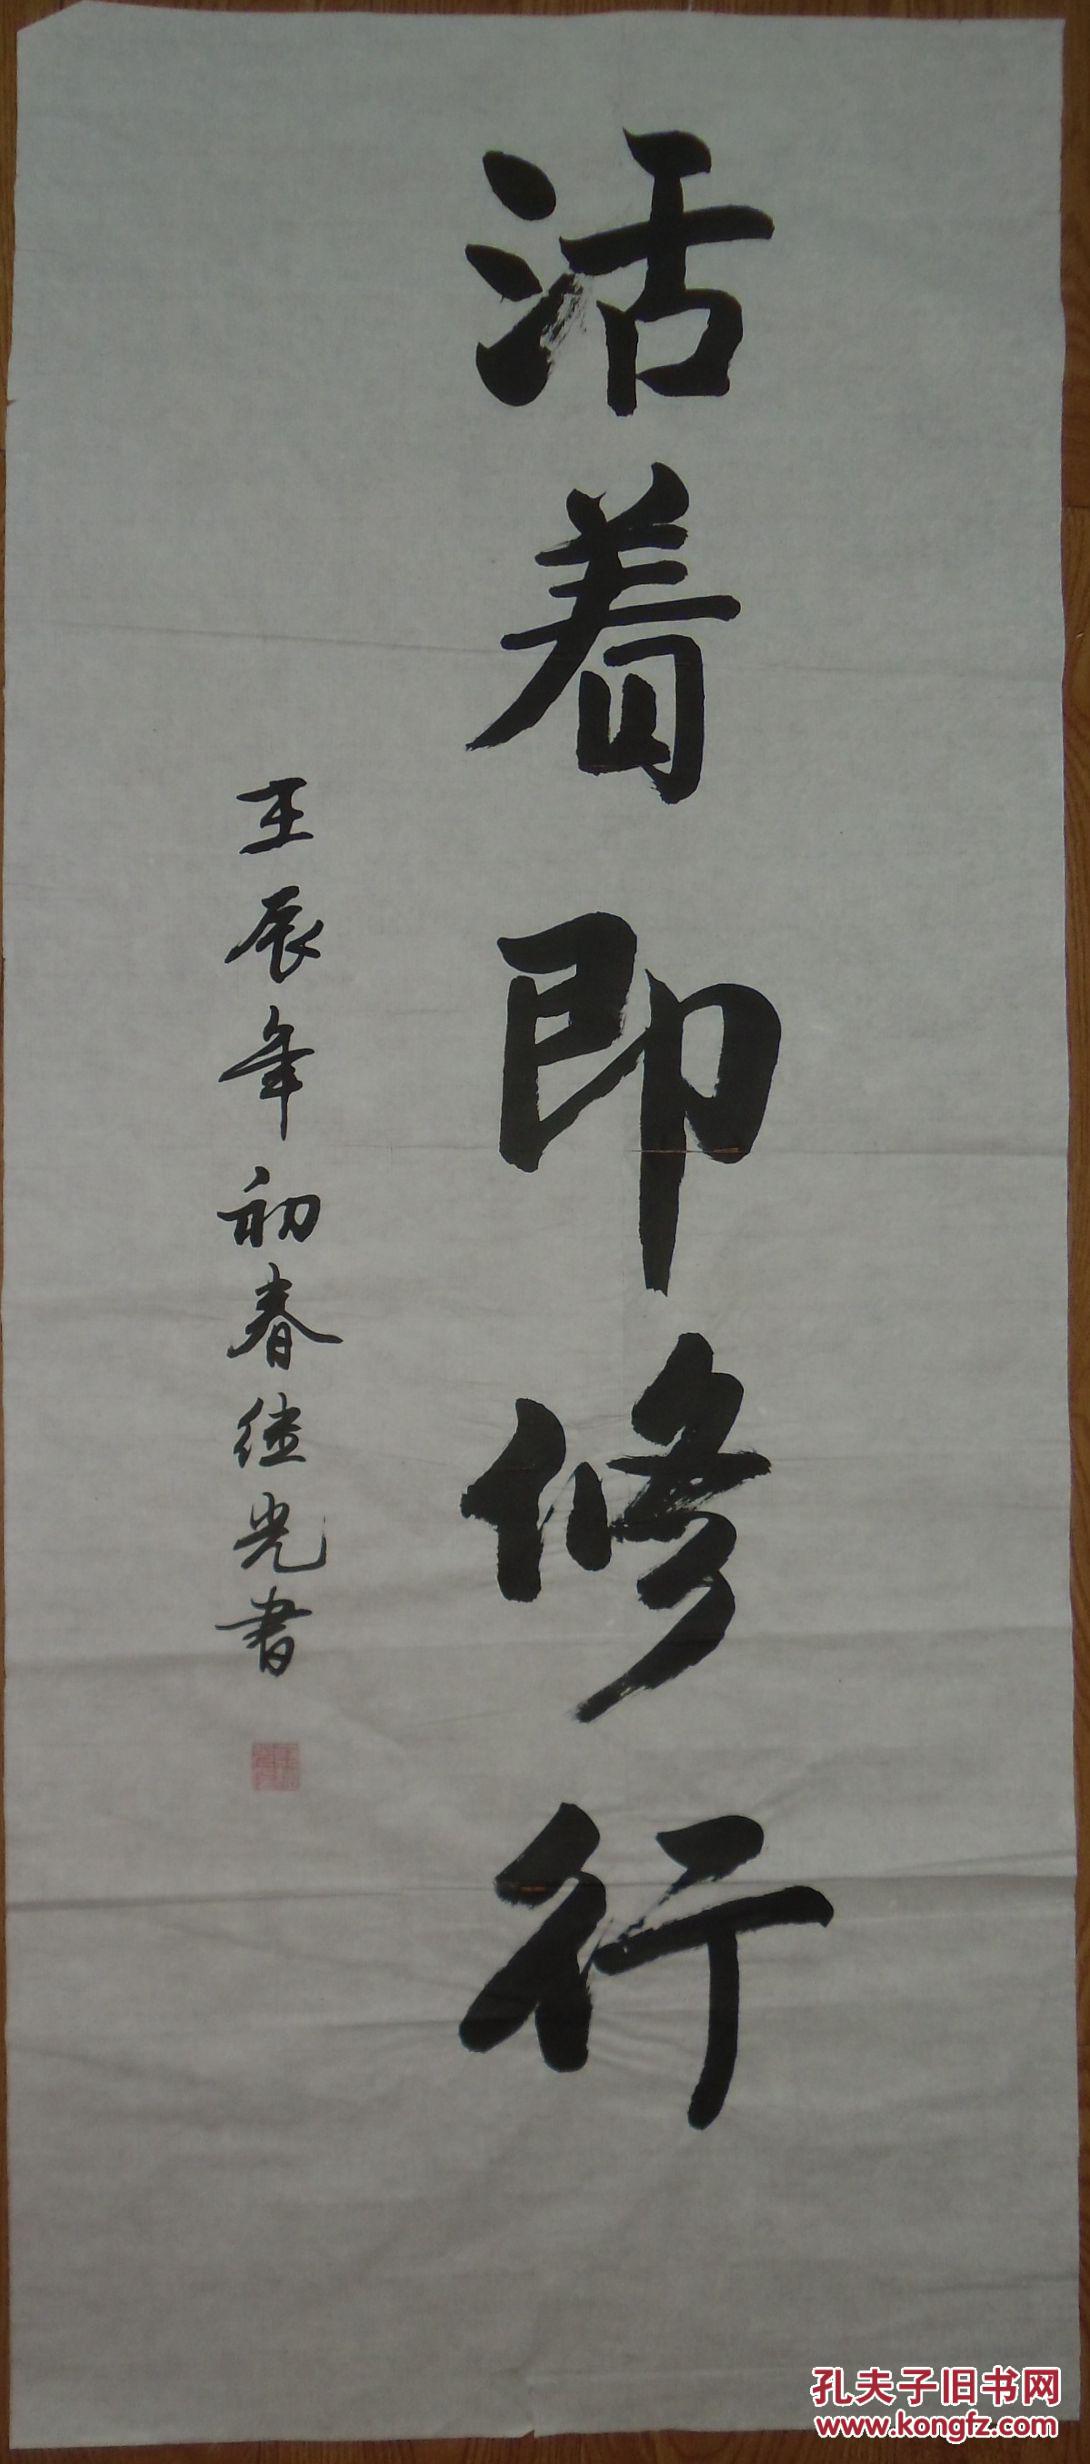 活着即修行
壬辰年初春继光书
孔夫子旧书网
www.kongfz.com